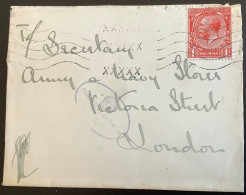 To
Secretary
Army & Navy Stores
Victoria Street
London
ONE PENNY